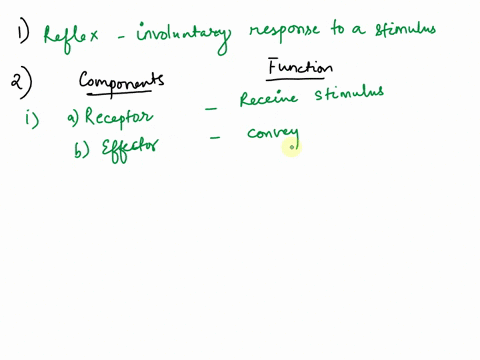 1) Reflex - involuntary response to a stimulus
2) Components Function
i) a) Receptor - Receive stimulus
b) Effector - convey